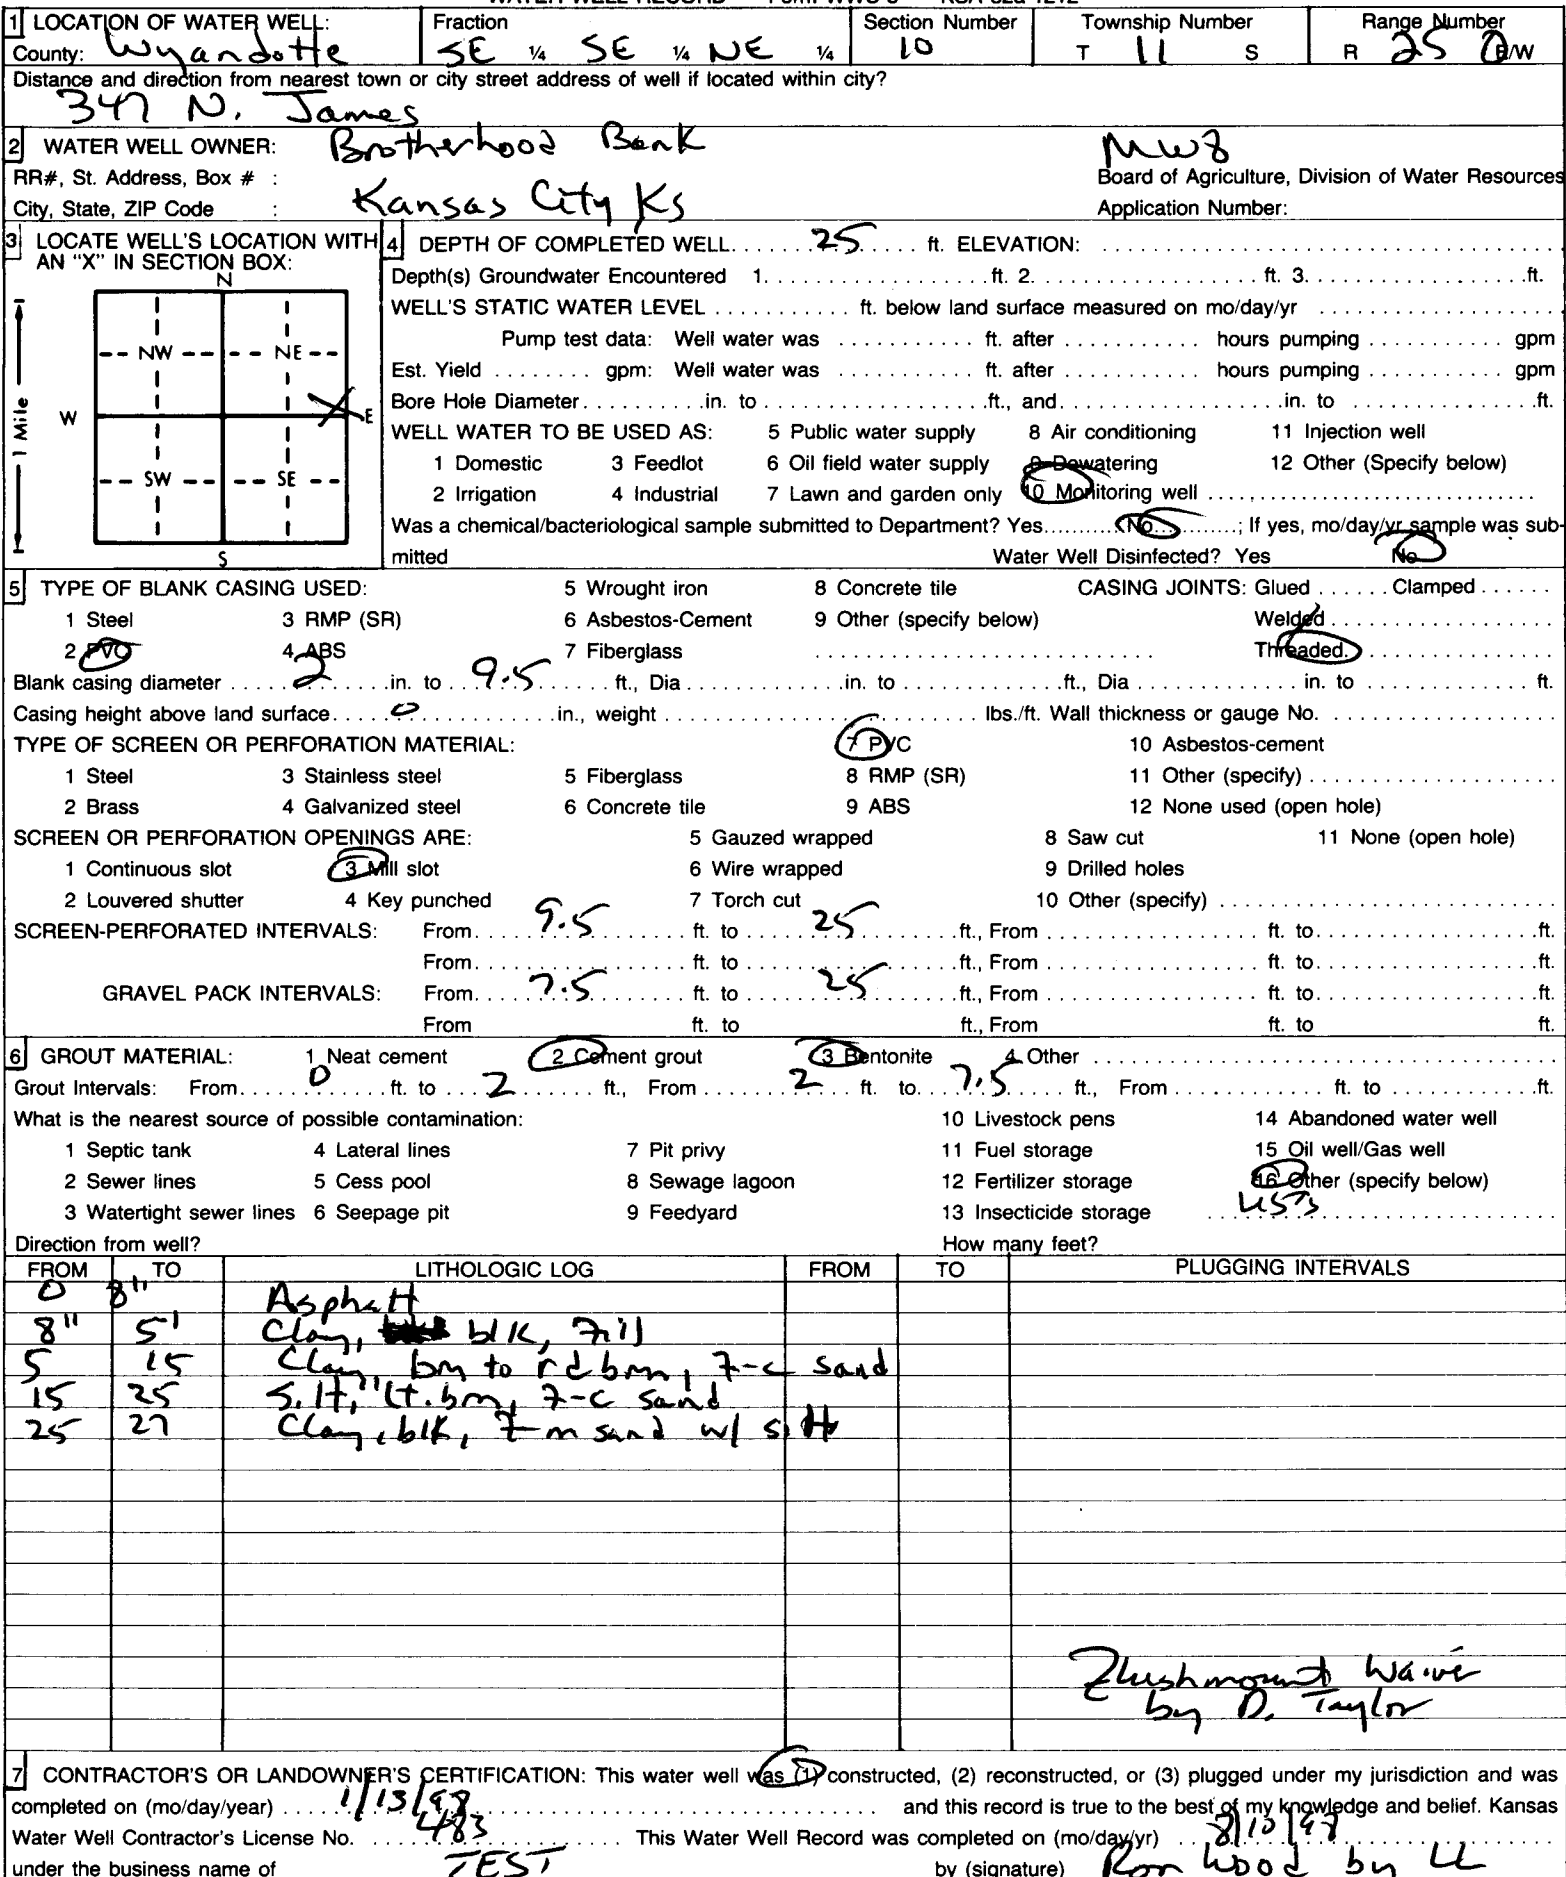 WATER WELL RECORD Form WWC-5 KSA 82a-1212
1 LOCATION OF WATER WELL: Fraction Section Number Township Number Range Number
County: Wyandotte SE ¼ SE ¼ NE ¼ 10 T 11 S R 25 E/W
Distance and direction from nearest town or city street address of well if located within city?
347 N. James
2 WATER WELL OWNER: Brotherhood Bank MW8
RR#, St. Address, Box # : Board of Agriculture, Division of Water Resources
City, State, ZIP Code : Kansas City Ks Application Number:
3 LOCATE WELL'S LOCATION WITH AN "X" IN SECTION BOX:
N
NW NE
W E
SW SE
S
1 Mile
4 DEPTH OF COMPLETED WELL 25 ft. ELEVATION:
Depth(s) Groundwater Encountered 1. ft. 2. ft. 3. ft.
WELL'S STATIC WATER LEVEL ft. below land surface measured on mo/day/yr
Pump test data: Well water was ft. after hours pumping gpm
Est. Yield gpm: Well water was ft. after hours pumping gpm
Bore Hole Diameter in. to ft., and in. to ft.
WELL WATER TO BE USED AS: 5 Public water supply 8 Air conditioning 11 Injection well
1 Domestic 3 Feedlot 6 Oil field water supply 9 Dewatering 12 Other (Specify below)
2 Irrigation 4 Industrial 7 Lawn and garden only 10 Monitoring well
Was a chemical/bacteriological sample submitted to Department? Yes No ; If yes, mo/day/yr sample was sub-
mitted Water Well Disinfected? Yes No
5 TYPE OF BLANK CASING USED: 5 Wrought iron 8 Concrete tile CASING JOINTS: Glued Clamped
1 Steel 3 RMP (SR) 6 Asbestos-Cement 9 Other (specify below) Welded
2 PVC 4 ABS 7 Fiberglass Threaded
Blank casing diameter 2 in. to 9.5 ft., Dia in. to ft., Dia in. to ft.
Casing height above land surface 0 in., weight lbs./ft. Wall thickness or gauge No.
TYPE OF SCREEN OR PERFORATION MATERIAL: 7 PVC 10 Asbestos-cement
1 Steel 3 Stainless steel 5 Fiberglass 8 RMP (SR) 11 Other (specify)
2 Brass 4 Galvanized steel 6 Concrete tile 9 ABS 12 None used (open hole)
SCREEN OR PERFORATION OPENINGS ARE: 5 Gauzed wrapped 8 Saw cut 11 None (open hole)
1 Continuous slot 3 Mill slot 6 Wire wrapped 9 Drilled holes
2 Louvered shutter 4 Key punched 7 Torch cut 10 Other (specify)
SCREEN-PERFORATED INTERVALS: From 9.5 ft. to 25 ft., From ft. to ft.
From ft. to ft., From ft. to ft.
GRAVEL PACK INTERVALS: From 7.5 ft. to 25 ft., From ft. to ft.
From ft. to ft., From ft. to ft.
6 GROUT MATERIAL: 1 Neat cement 2 Cement grout 3 Bentonite 4 Other
Grout Intervals: From 0 ft. to 2 ft., From 2 ft. to 7.5 ft., From ft. to ft.
What is the nearest source of possible contamination: 10 Livestock pens 14 Abandoned water well
1 Septic tank 4 Lateral lines 7 Pit privy 11 Fuel storage 15 Oil well/Gas well
2 Sewer lines 5 Cess pool 8 Sewage lagoon 12 Fertilizer storage 16 Other (specify below)
3 Watertight sewer lines 6 Seepage pit 9 Feedyard 13 Insecticide storage USTs
Direction from well? How many feet?
FROM TO LITHOLOGIC LOG FROM TO PLUGGING INTERVALS
0 8" Asphalt
8" 5' Clay, blk, Fill
5 15 Clay, brn to rd brn, F-c sand
15 25 Silt, lt. brn, F-c sand
25 27 Clay, blk, F-m sand w/ silt
Flushmount Waiver
by D. Taylor
7 CONTRACTOR'S OR LANDOWNER'S CERTIFICATION: This water well was (1) constructed, (2) reconstructed, or (3) plugged under my jurisdiction and was
completed on (mo/day/year) 1/13/98 and this record is true to the best of my knowledge and belief. Kansas
Water Well Contractor's License No. 483 This Water Well Record was completed on (mo/day/yr) 8/10/98
under the business name of TEST by (signature) Ron Wood by LL